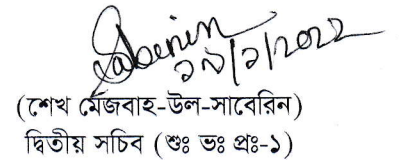 Saberin
১৯/১/২০২২
(শেখ মেজবাহ-উল-সাবেরিন)
দ্বিতীয় সচিব (শুঃ ভঃ প্রঃ-১)